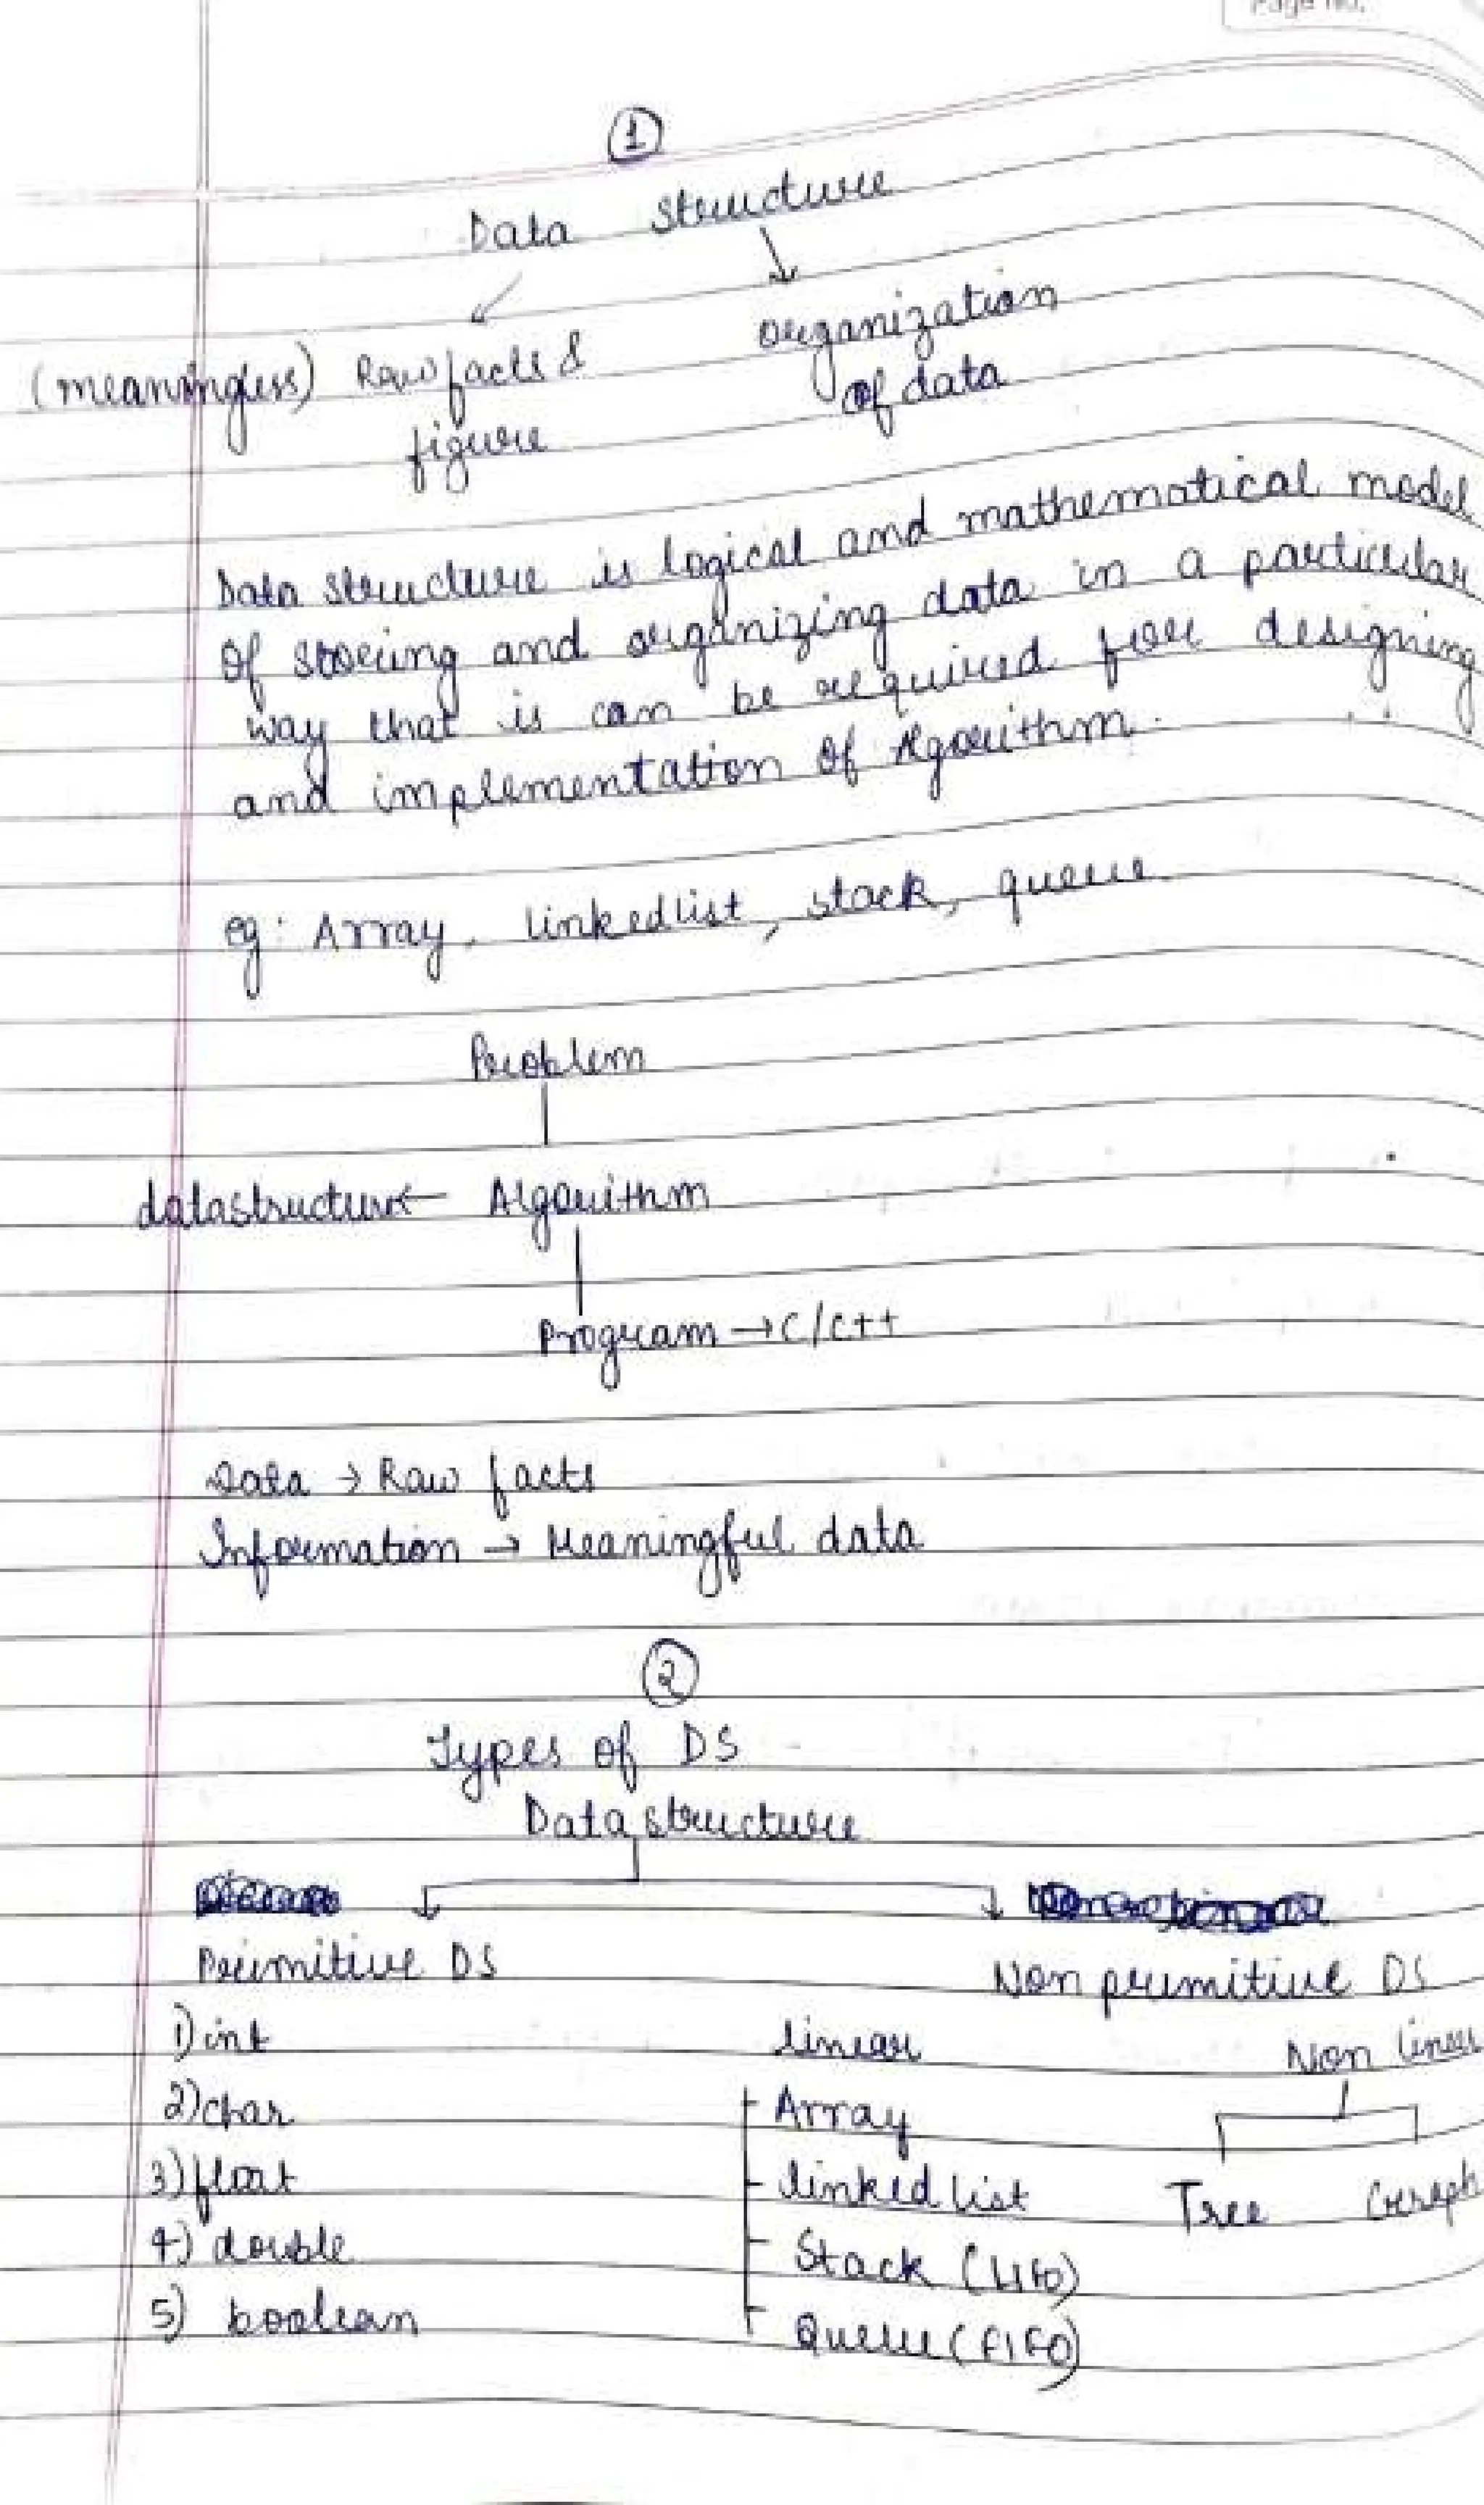 Page No.
1
Data structure
(meaningless) Raw facts & figure
organization of data
Data structure is logical and mathematical model
of storing and organizing data in a particular
way that is can be required for designing
and implementation of Algorithm.
eg: Array, linkedlist, stack, queue
Problem
datastructure ← Algorithm
Program → C/C++
Data → Raw facts
Information → Meaningful data
2
Types of DS
Data structure
Primitive DS
Non primitive DS
1) int
linear
Non linear
2) char
Array
3) float
linked list
Tree
Graph
4) double
Stack (LIFO)
5) boolean
Queue (FIFO)